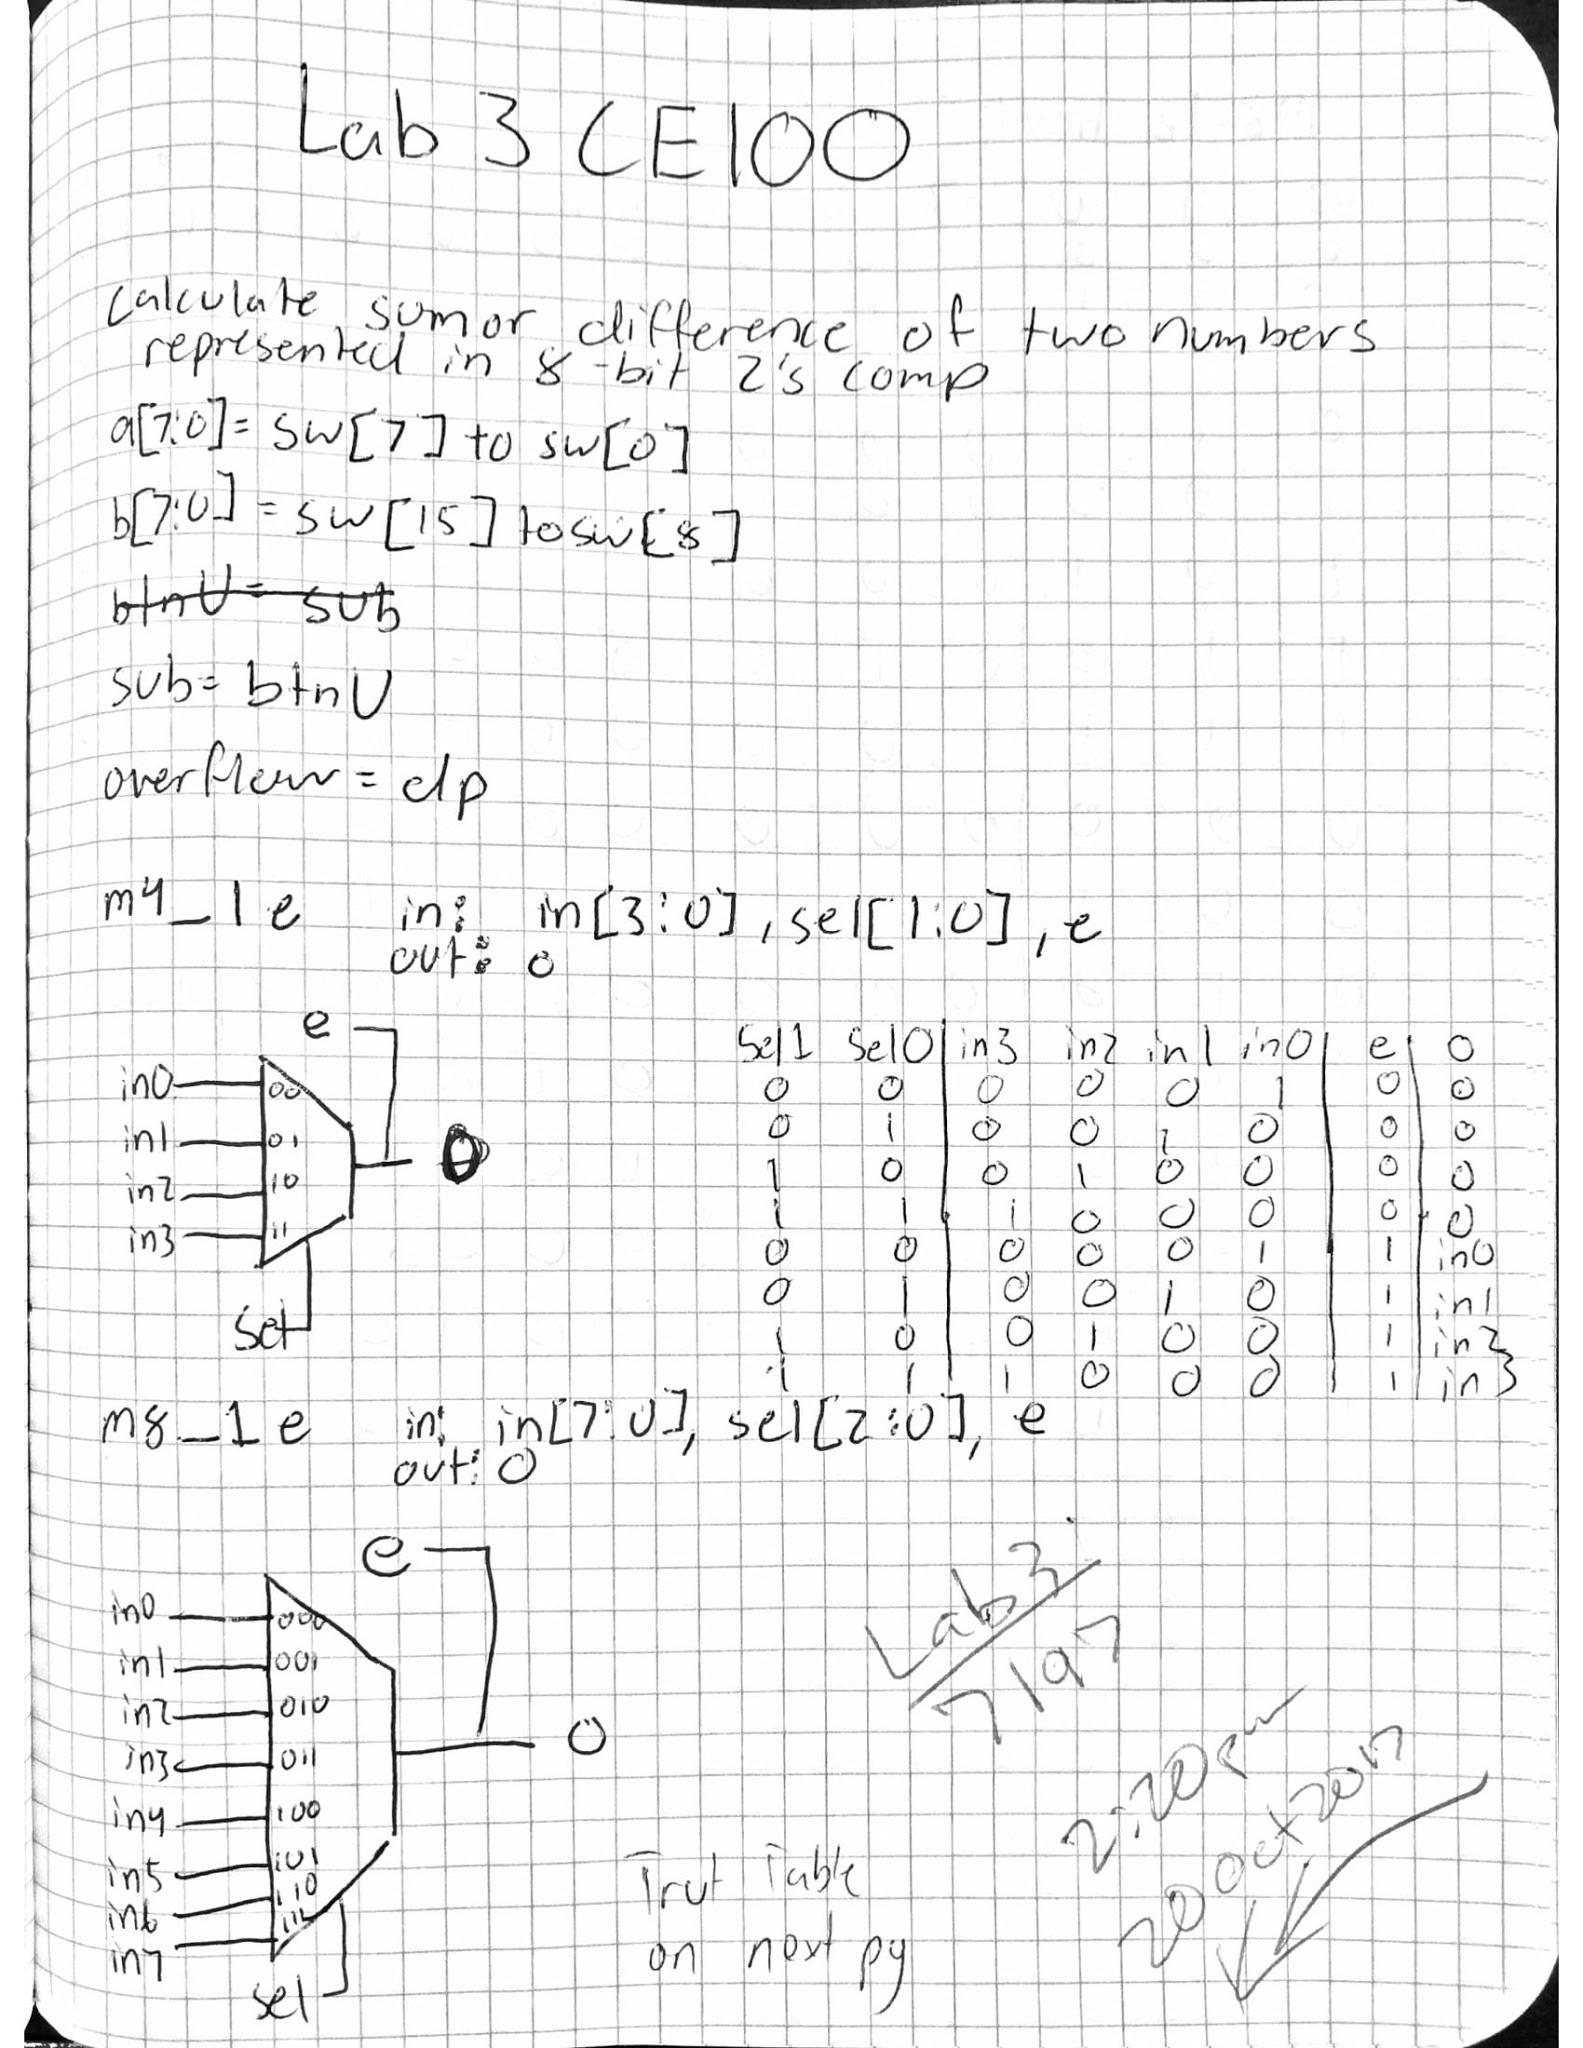 Lab 3 CE100
calculate sum or difference of two numbers
represented in 8-bit 2's comp
a[7:0] = sw[7] to sw[0]
b[7:0] = sw[15] to sw[8]
btnU = sub
sub = btnU
overflow = dp
m4_1e in: in[3:0], sel[1:0], e
out: o
e
in0 00
in1 01
in2 10
in3 11
o
sel
sel1 sel0 in3 in2 in1 in0 e o
0 0 0 0 0 1 0 0
0 1 0 0 1 0 0 0
1 0 0 1 0 0 0 0
1 1 1 0 0 0 0 0
0 0 0 0 0 1 1 in0
0 1 0 0 1 0 1 in1
1 0 0 1 0 0 1 in2
1 1 1 0 0 0 1 in3
m8_1e in: in[7:0], sel[2:0], e
out: o
e
in0 000
in1 001
in2 010
in3 011
in4 100
in5 101
in6 110
in7 111
o
sel
Lab 3
7197
2:20pm
20 Oct 2017
Trut Table
on next pg